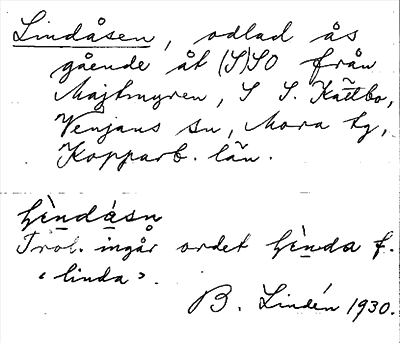 Lindåsen, odlad ås
gående åt (S)SO från
Majtmyren, S S. Kättbo,
Venjans sn, Mora tg,
Kopparb. län.
Lìndåsn
Trol. ingår ordet lìnda f.
‹ linda ›.
B. Lindén 1930.